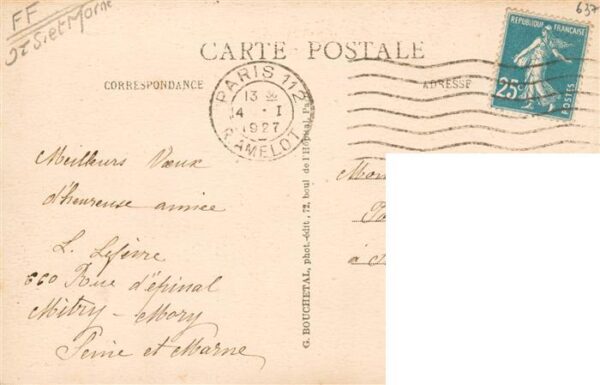 FF
Set Marne
637
CARTE POSTALE
CORRESPONDANCE
ADRESSE
PARIS 112
13
4 · I
1927
R. AMELOT
REPUBLIQUE FRANÇAISE
25c
POSTES
Meilleurs Vœux
d'heureuse année
L. Lefèvre
660 Rue d'épinal
Mitry - Mory
Seine et Marne
G. BOUCHETAL, phot.-édit., 72, boul de l'Hôpital, Pa
Mon
à